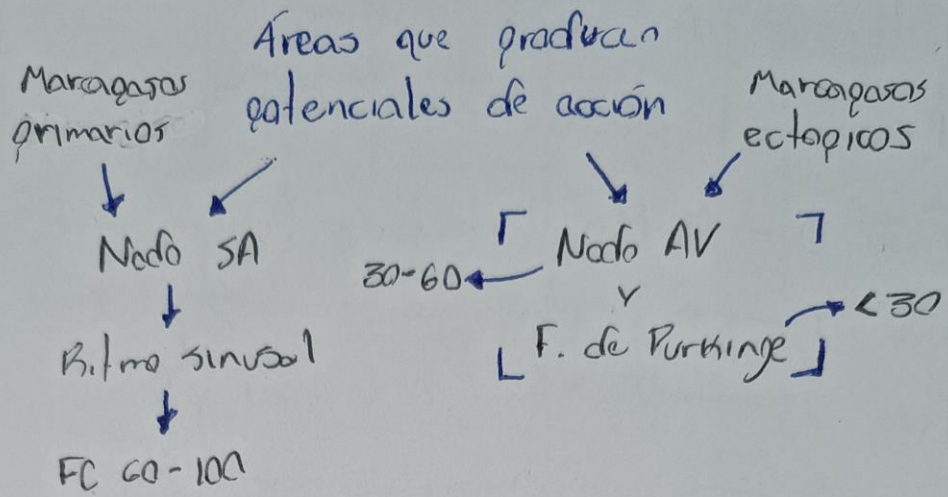 Áreas que producen
potenciales de acción
Marcapasos
primarios
Marcapasos
ectopicos
Nodo SA
Ritmo sinusal
FC 60-100
Nodo AV
30-60
Y
F. de Purkinge
<30